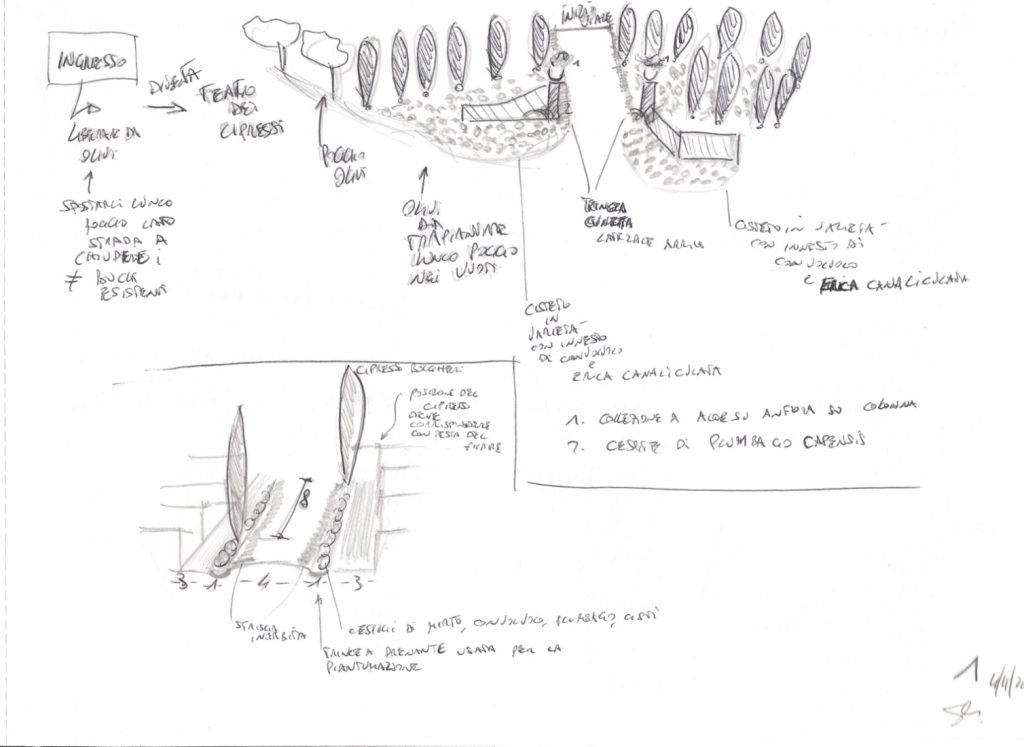 INGRESSO
LIBERARE DA
OLIVI
SPOSTARLI LUNGO
POGGIO LATO
STRADA A
CHIUDERE I
≠ BUCHI
ESISTENTI
DIVENTA
TEATRO
DEI
CIPRESSI
POGGIO
OLIVI
OLIVI
DA
TRAPIANTARE
LUNGO POGGIO
NEI VUOTI
INIZIALE
1
1
2
2
TRINCEA
CUNETTA
CISTETO IN VARIETA'
CON INNESTO DI
CONVOLVOLO
e ERICA CANALICULATA
CISTETO
IN
VARIETA'
CON INNESTO
DI CONVOLVOLO
e
ERICA CANALICULATA
1. COLLEZIONE A AGAVE SU ANFORA SU COLONNA
2. CESPITE DI PLUMBAGO CAPENSIS
CIPRESSO BOLGHERI
POSIZIONE DEL
CIPRESSO
DEVE
CORRISPONDERE
CON TESTA DEL
FILARE
8
-3- -1- -4- -1- -3-
STRISCIA
INERBITA
CESPUGLI DI MIRTO, CONVOLVOLO, PLUMBAGO, CISTI
TRINCEA DRENANTE USATA PER LA
PIANTUMAZIONE
1